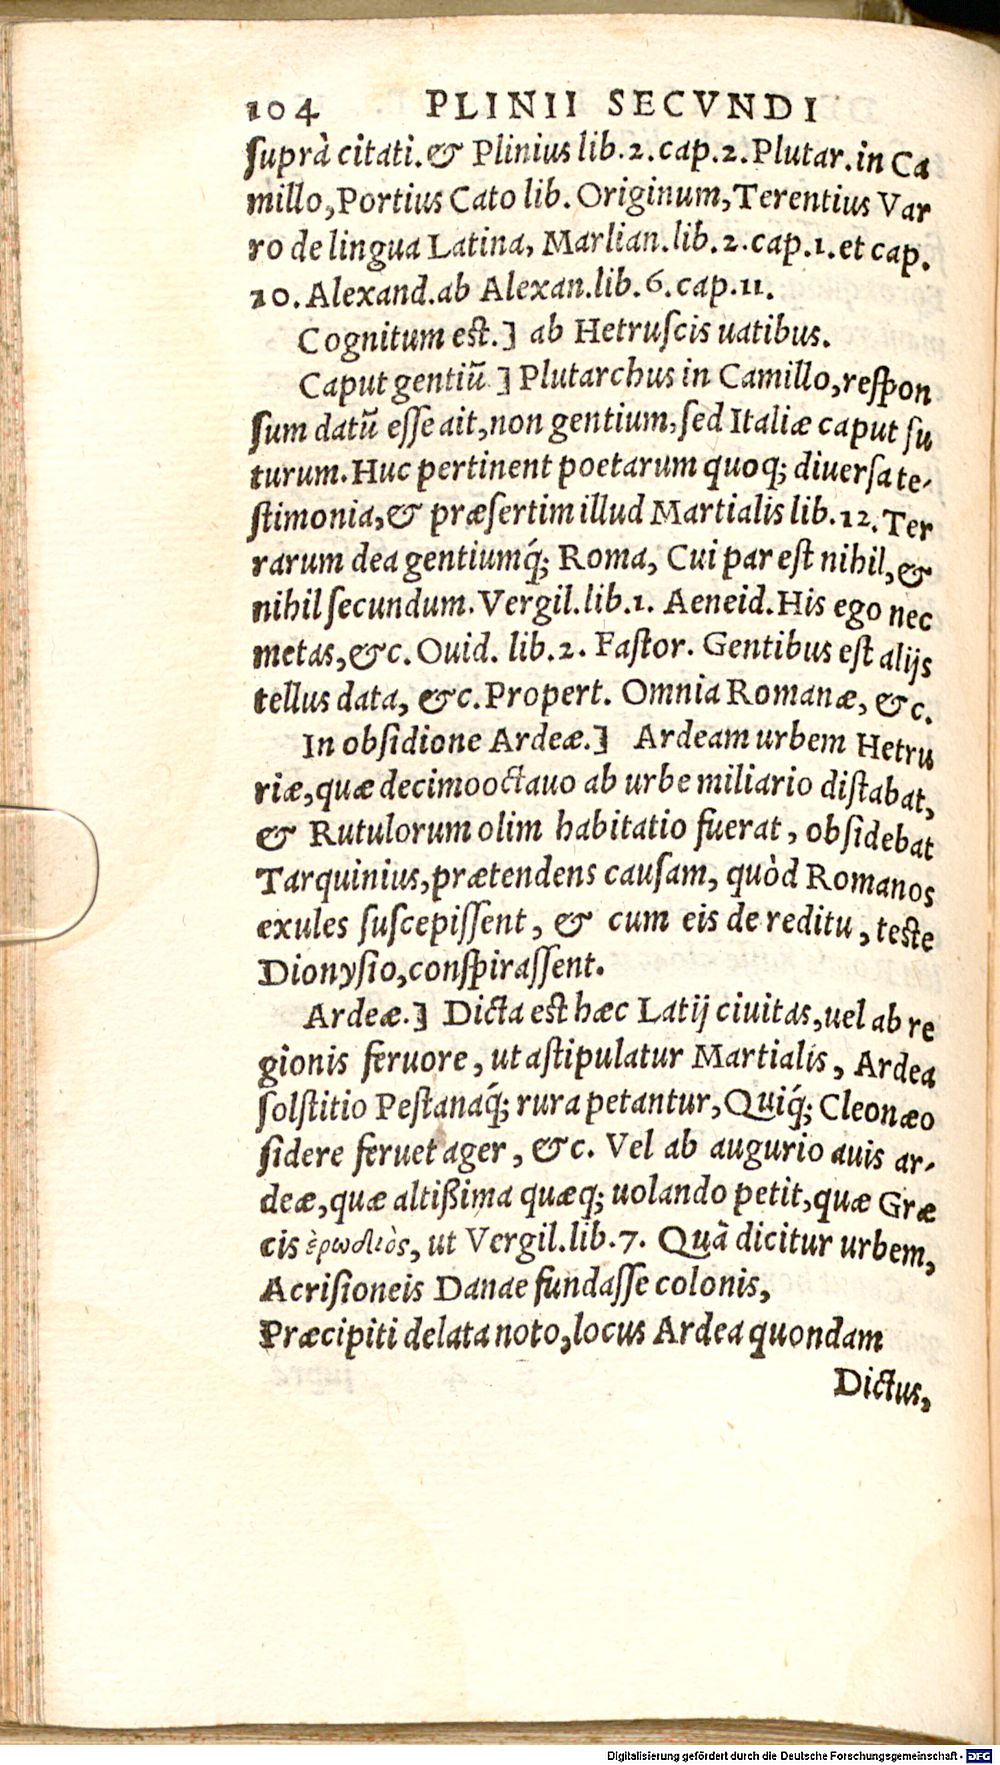 104 PLINII SECVNDI
ſuprà citati. & Plinius lib. 2. cap. 2. Plutar. in Ca
millo, Portius Cato lib. Originum, Terentius Var
ro de lingua Latina, Marlian. lib. 2. cap. 1. et cap.
20. Alexand. ab Alexan. lib. 6. cap. 11.
Cognitum est.] ab Hetruſcis uatibus.
Caput gentiũ ] Plutarchus in Camillo, reſpon
ſum datũ eſſe ait, non gentium, ſed Italiæ caput fu
turum. Huc pertinent poetarum quoq; diuerſa te-
ſtimonia, & præſertim illud Martialis lib. 12. Ter
rarum dea gentiumq́; Roma, Cui par eſt nihil, &
nihil ſecundum. Vergil. lib. 1. Aeneid. His ego nec
metas, &c. Ouid. lib. 2. Faſtor. Gentibus eſt alijs
tellus data, &c. Propert. Omnia Romanæ, &c.
In obſidione Ardeæ.] Ardeam urbem Hetru
riæ, quæ decimooctauo ab urbe miliario diſtabat,
& Rutulorum olim habitatio fuerat, obſidebat
Tarquinius, prætendens cauſam, quòd Romanos
exules ſuſcepiſſent, & cum eis de reditu, teſte
Dionyſio, conſpiraſſent.
Ardeæ.] Dicta eſt hæc Latij ciuitas, uel ab re
gionis feruore, ut aſtipulatur Martialis, Ardea
ſolſtitio Peſtanaq́; rura petantur, Quiq́; Cleonæo
ſidere feruet ager, &c. Vel ab augurio auis ar-
deæ, quæ altißima quæq; uolando petit, quæ Græ
cis ἐρωδιὸς, ut Vergil. lib. 7. Quã dicitur urbem,
Acriſioneis Danae fundaſſe colonis,
Præcipiti delata noto, locus Ardea quondam
Dictus,
Digitalisierung gefördert durch die Deutsche Forschungsgemeinschaft - DFG